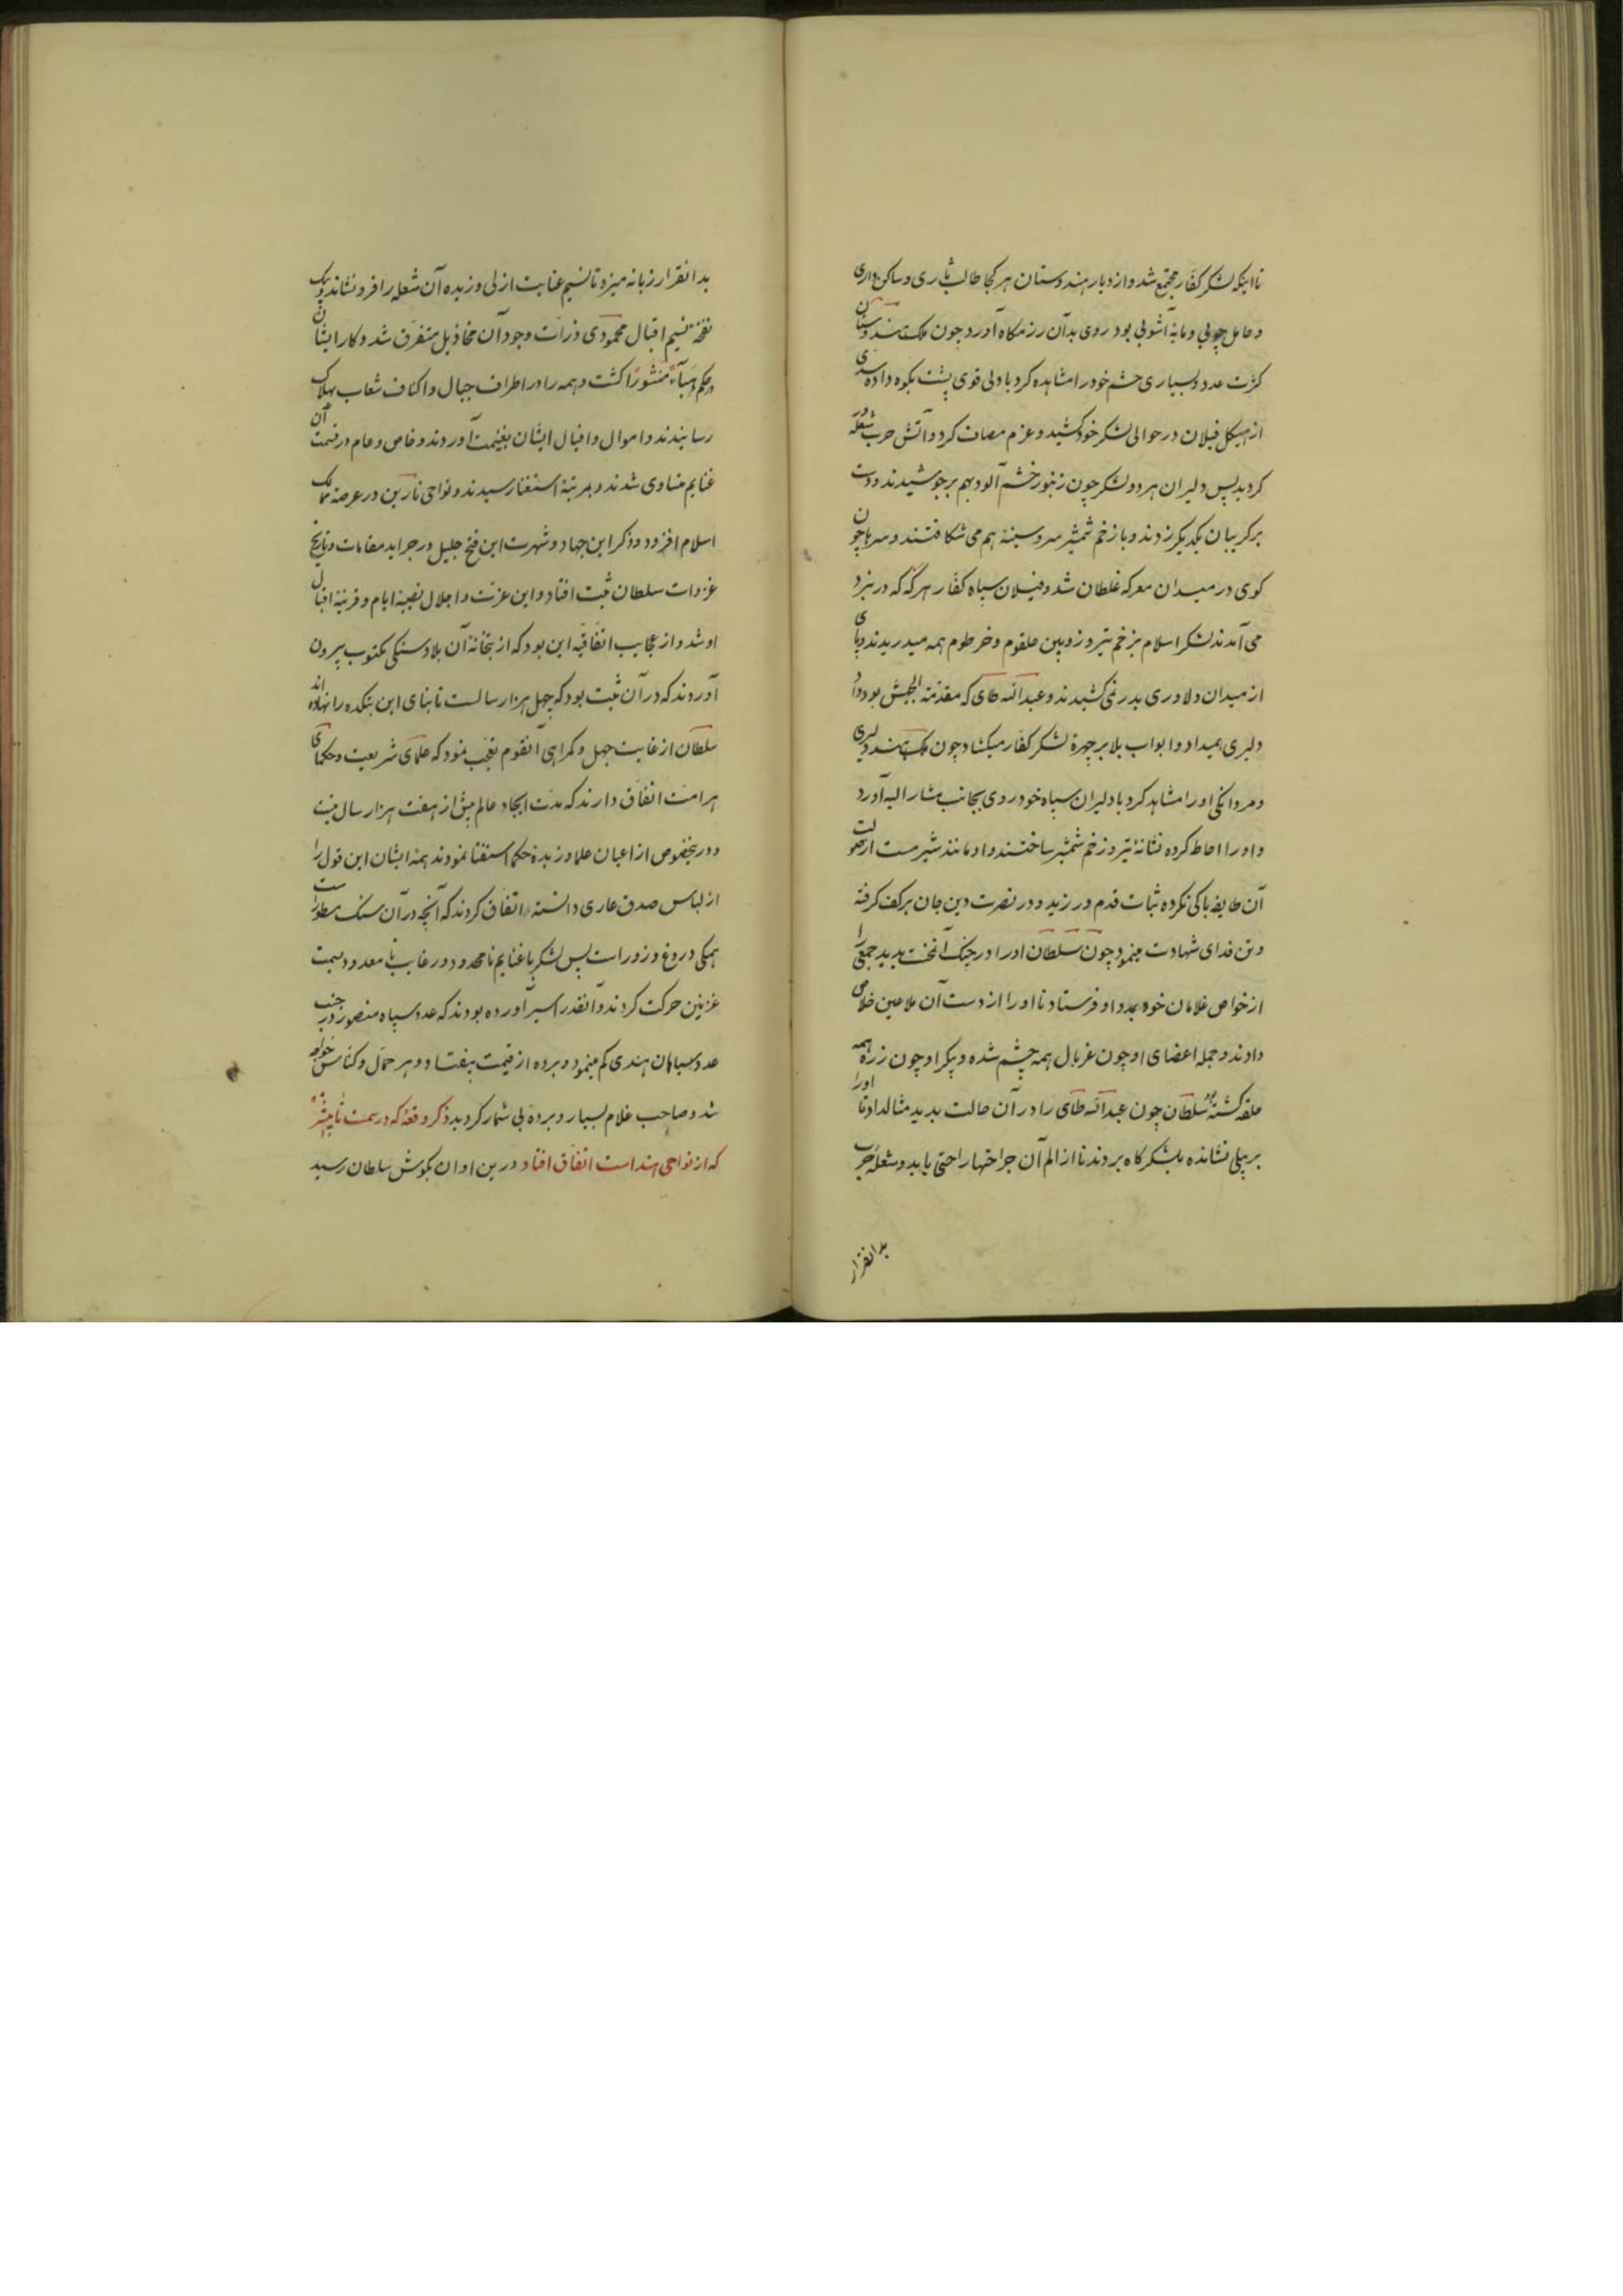 تا اینکه لشکر کفار مجتمع شد و از دیار هندوستان هر کجا طالب ثاری و ساکن داری
و حامل چوبی و مایه آشوبی بود روی بدان رزمکاه آورد چون ملک هندوستان
کثرت عدد و بسیاری حشم خود را مشاهده کرد با دلی قوی پشت بکوه داده سدی
از هیکل فیلان در حوالی لشکر خود کشید و عزم مصاف کرد و آتش حرب شعله ور
کردید پس دلیران هر دو لشکر چون زنبور خشم آلود بهم برجوشیدند و دست
بر کریبان یکدیکر زدند و با زخم شمشیر سر و سینه هم می شکافتند و سرها چون
کوی در میدان معرکه غلطان شد و فیلان سپاه کفار هر که که در نبرد
می آمدند لشکر اسلام بزخم تیر و زوبین حلقوم و خرطوم همه میدریدند و پای
از میدان دلاوری بدر نمی کشیدند و عبدالله طای که مقدمة الجیش بود داد
دلیری میداد و ابواب بلا بر چهره لشکر کفار میکشاد چون ملک هند دلیری
و مردانکی او را مشاهد کرد با دلیران سپاه خود روی بجانب مشار الیه آورد
و او را احاط کرده نشانه تیر و زخم شمشیر ساختند و او مانند شیر مست از صولت
آن طایفه باکی نکرده ثبات قدم ورزید و در نصرت دین جان بر کف کرفته
و تن فدای شهادت مینمود چون سلطان او را در جنک آن سخت بدید جمعی را
از خواص غلامان خود بمدد او فرستاد تا او را از دست آن ملاعین خلاص
دادند و جمله اعضای او چون غربال همه چشم شده و پیکر او چون زره همه
حلقه کشته بود سلطان چون عبدالله طای را در آن حالت بدید مثال داد تا او را
بر پیلی نشانده بلشکرکاه بردند تا از الم آن جراحتها راحتی یابد و شعله حرب
بدانقرار
بدانقرار زبانه میزد تا نسیم عنایت ازلی وزیده آن شعله را فرو نشاند و بیک
نفخه نسیم اقبال محمودی ذرات وجود آن مخاذیل متفرق شد و کار ایشان
حکم هباء منثورا کشت و همه را در اطراف جبال و اکناف شعاب بهلاک
رسانیدند و اموال و افیال ایشان بغنیمت آوردند و خاص و عام در قسمت آن
غنایم متساوی شدند و بمرتبه استغنا رسیدند و نواحی نارین در عرصه ممالک
اسلام افزود و ذکر این جهاد و شهرت این فتح جلیل در جراید مقامات و تاریخ
غزوات سلطان ثبت افتاد و این عزت و اجلال نصیبه ایام و قرینه اقبال
او شد و از عجایب اتفاقیه این بود که از بتخانه آن بلاد سنکی مکتوب بیرون
آوردند که در آن ثبت بود که چهل هزار سالست تا بنای این بتکده را نهاده اند
سلطان از غایت جهل و کمراهی آنقوم تعجب نمود که علمای شریعت و حکمای
هر امت اتفاق دارند که مدت ایجاد عالم بیش از هفت هزار سال نیست
و درینخصوص از اعیان علما و زبده حکما استفتا نمودند همه ایشان این قول را
از لباس صدق عاری دانسته اتفاق کردند که آنچه در آن سنک مسطور است
همکی دروغ و زور است پس لشکر با غنایم نامحدود و رغایب نامعدود بسمت
غزنین حرکت کردند و آنقدر اسیر آورده بودند که عدد سپاه منصور در جنب
عدد سیاهان هندی کم مینمود و برده از قیمت بیفتاد و هر حمال و کناس خواجه
شد و صاحب غلام بسیار و برده بی شمار کردید ذکر وقعه که در سمت تانیشر
که از نواحی هند است اتفاق افتاد درین اوان بکوش سلطان رسید